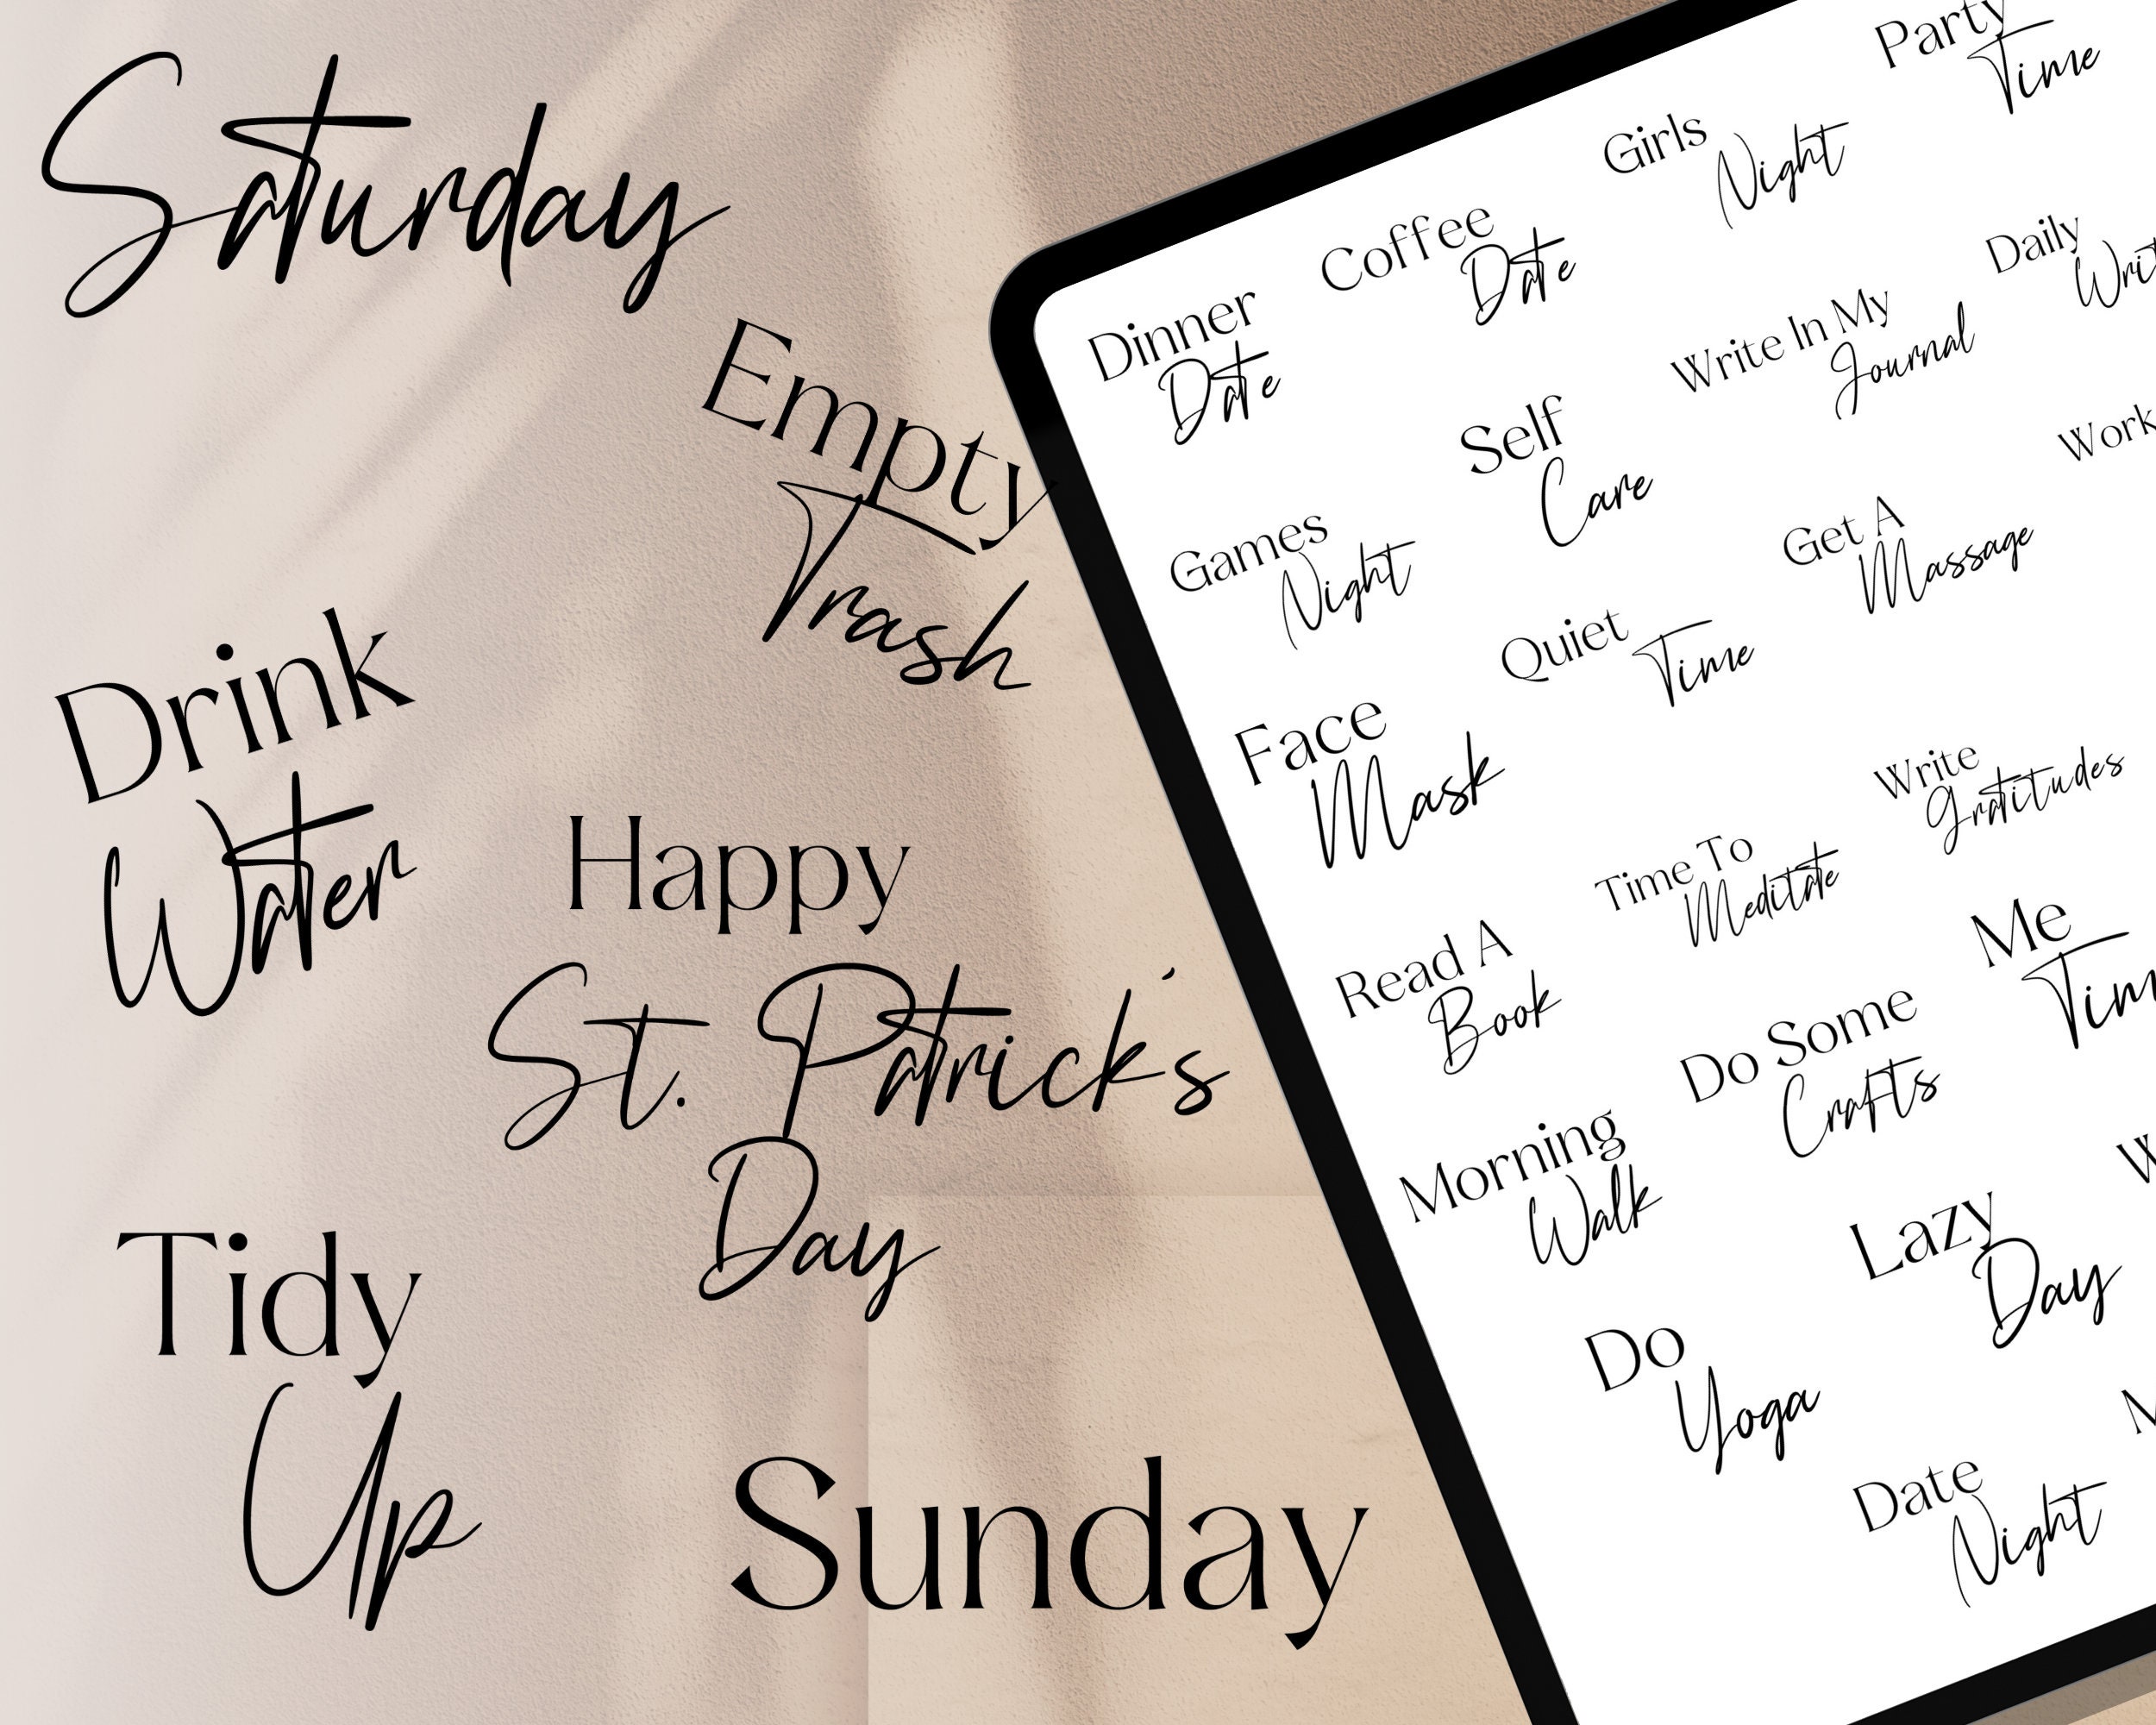 Saturday
Empty
Trash
Drink
Water
Happy
St. Patrick's
Day
Tidy
Up
Sunday
Party
Time
Girls
Night
Coffee
Date
Dinner
Date
Daily
Write In My
Journal
Self
Care
Games
Night
Work
Get A
Massage
Quiet
Time
Face
Mask
Write
Gratitudes
Time To
Meditate
Read A
Book
Me
Do Some
Crafts
Morning
Walk
Lazy
Day
Do
Yoga
Date
Night